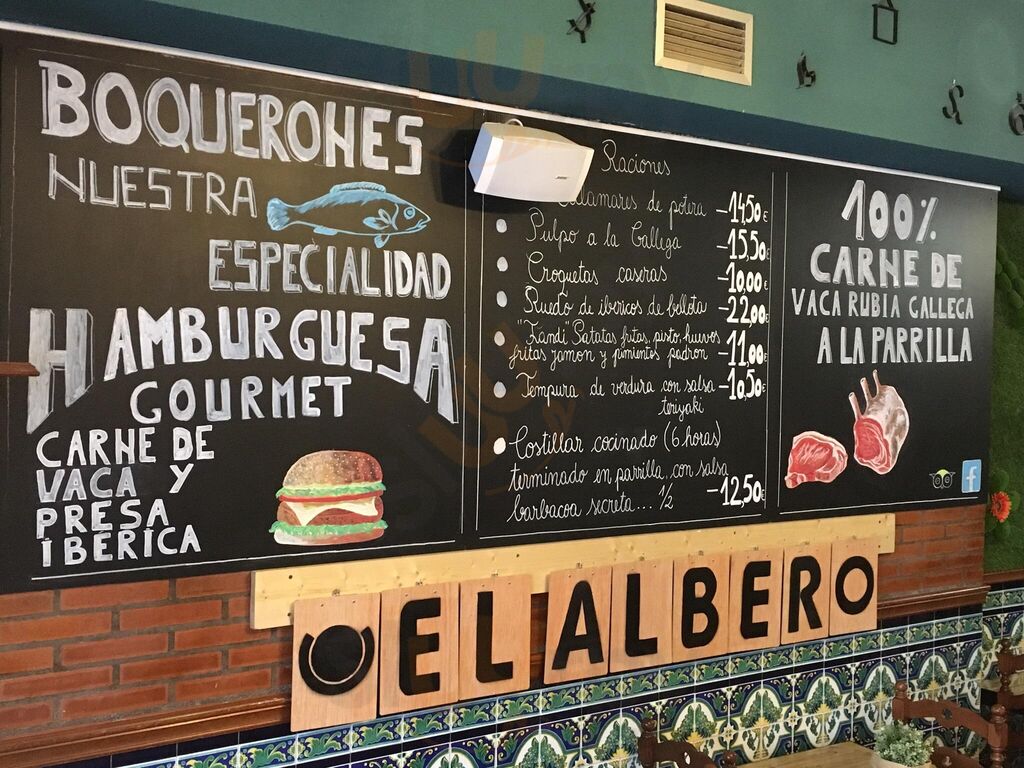 BOQUERONES
NUESTRA
ESPECIALIDAD
HAMBURGUESA
GOURMET
CARNE DE
VACA Y
PRESA
IBERICA
Raciones
Calamares de potera -14,50€
Pulpo a la Gallega -15,50€
Croquetas caseras -10,00€
Ruedo de ibericos de bellota -22,00€
"Kandi" Patatas fritas, pisto, huevos
fritas jamon y pimientos padron -11,00€
Tempura de verdura con salsa -10,50€
teriyaki
Costillar cocinado (6 horas)
terminado en parrilla, con salsa
barbacoa secreta... 1/2 -12,50€
100%
CARNE DE
VACA RUBIA GALLEGA
A LA PARRILLA
f
EL ALBERO